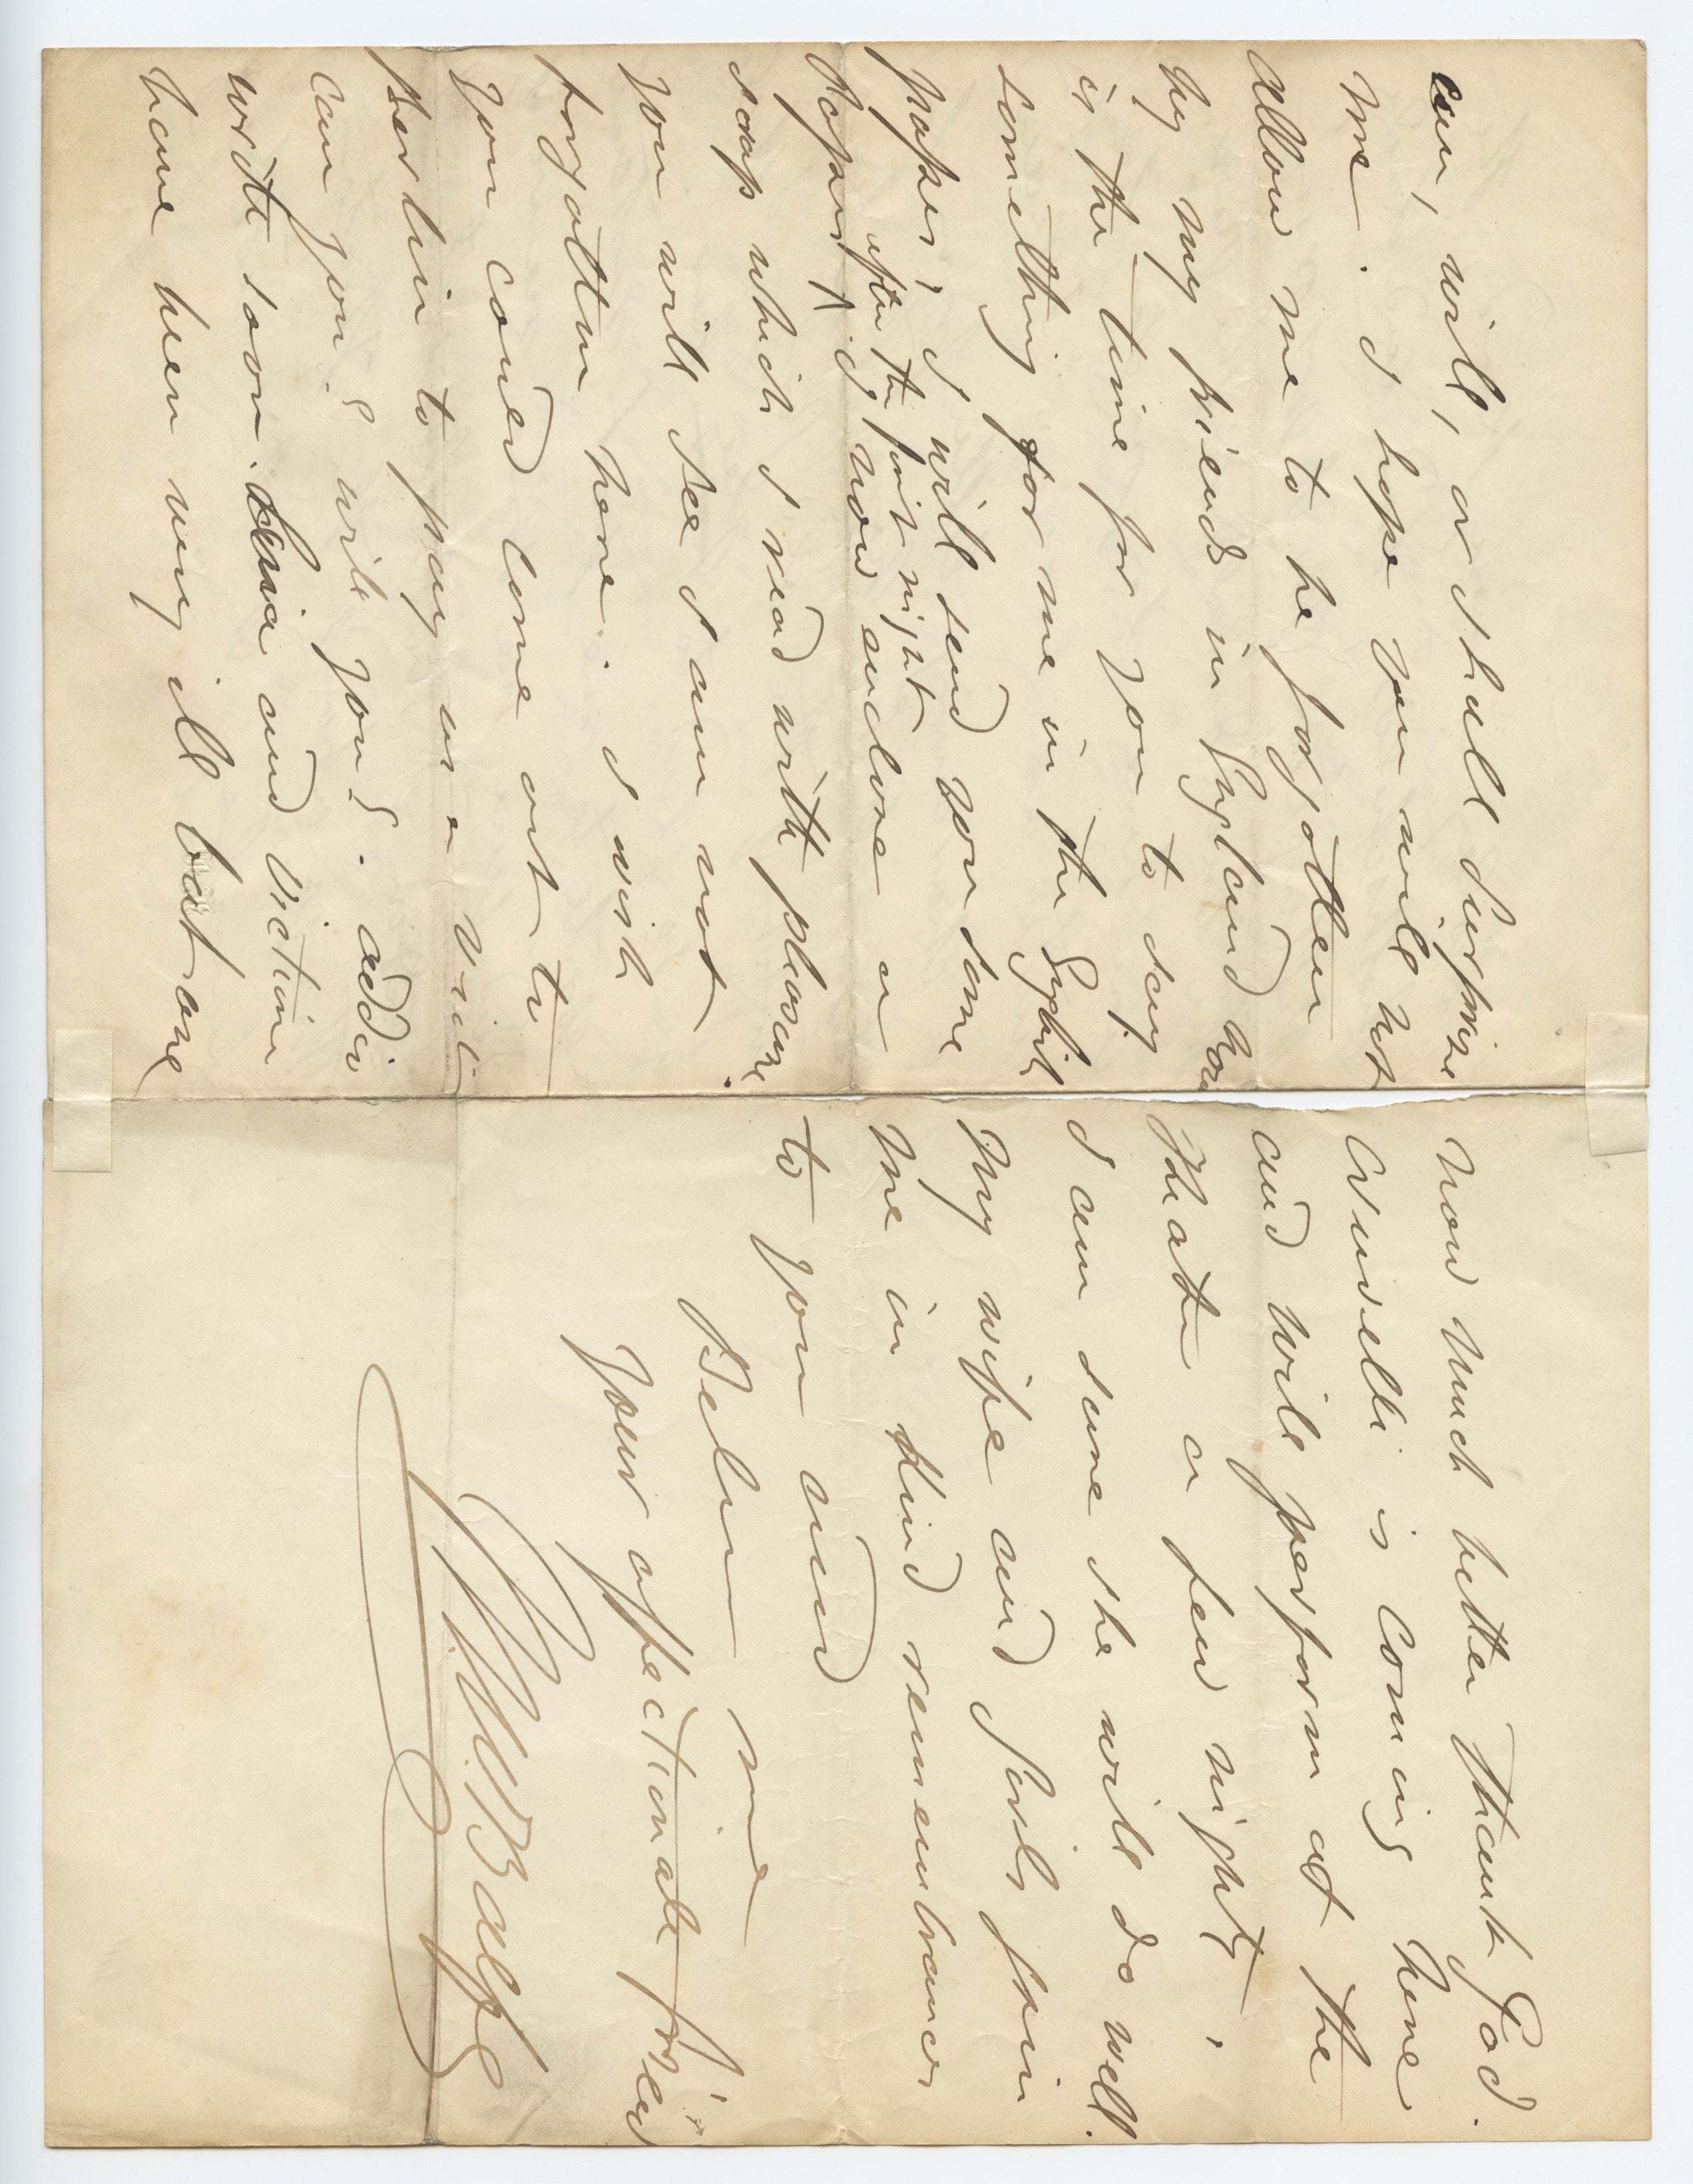 can, will, or shall surprise
me. I hope you will not
allow me to be forgotten
by my friends in England now
is the time for you to say
something for me in the English
papers, I will send you some
after the first night
papers ^ I now enclose a
scrap which I read with pleasure.
You will see I am not
forgotten here. I wish
you could come out to
Berlin to pay us a visit
can you? will you?. addio
write soon. Lina and Victoire
have been very ill but are
now much better thank God.
Cruvelli is coming here
and will perform at the
Theatre a few nights,
I am sure she will do well.
My wife and Girls join
me in kind remembrances
to you and
Believe me
Your affectionate friend
M W Balfe